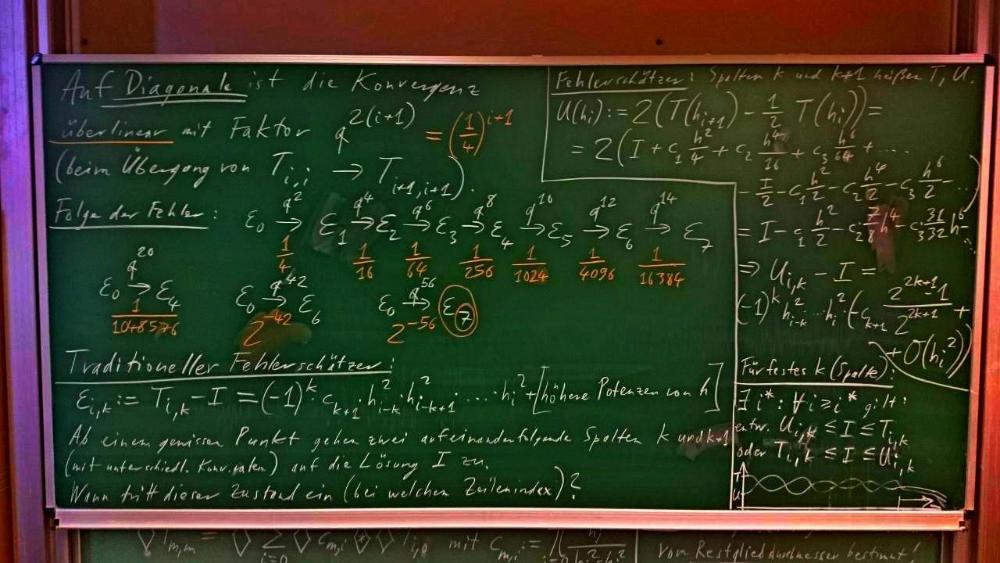 Auf Diagonale ist die Konvergenz
überlinear mit Faktor q^{2(i+1)} = (1/4)^{i+1}
(beim Übergang von T_{i,i} → T_{i+1,i+1}).
Folge der Fehler: ε_0 →^{q^2} ε_1 →^{q^4} ε_2 →^{q^6} ε_3 →^{q^8} ε_4 →^{q^{10}} ε_5 →^{q^{12}} ε_6 →^{q^{14}} ε_7
1/4 1/16 1/64 1/256 1/1024 1/4096 1/16384
ε_0 →^{q^{20}} ε_4 ε_0 →^{q^{42}} ε_6 ε_0 →^{q^{56}} ε_7
1/1048576 2^{-42} 2^{-56}
Traditioneller Fehlerschätzer:
ε_{i,k} := T_{i,k} - I = (-1)^k · c_{k+1} · h_{i-k}^2 · h_{i-k+1}^2 · .... · h_i^2 + [höhere Potenzen von h]
Ab einem gewissen Punkt gehen zwei aufeinanderfolgende Spalten k und k+1
(mit unterschiedl. Konv.raten) auf die Lösung I zu.
Wann tritt dieser Zustand ein (bei welchen Zeilenindex)?
Fehlerschätzer: Spalten k und k+1 heißen T, U.
U(h_i) := 2(T(h_{i+1}) - 1/2 T(h_i)) =
= 2(I + c_1 h^2/4 + c_2 h^4/16 + c_3 h^6/64 + ....
- I/2 - c_1 h^2/2 - c_2 h^4/2 - c_3 h^6/2 - ...)
= I - c_1 h^2/2 - c_2 7/8 h^4 - c_3 31/32 h^6 - ...
⇒ U_{i,k} - I =
(-1)^k h_{i-k}^2 ... h_i^2 (-c_{k+1} (2^{2k+1} - 1)/2^{2k+1} +
+ O(h_i^2))
Für festes k (Spalte):
∃ i*: ∀ i ≥ i* gilt:
entw. U_{i,k} ≤ I ≤ T_{i,k}
oder T_{i,k} ≤ I ≤ U_{i,k}
T
U
mit c_{m,i} :=
vom Restglied bestimmt!